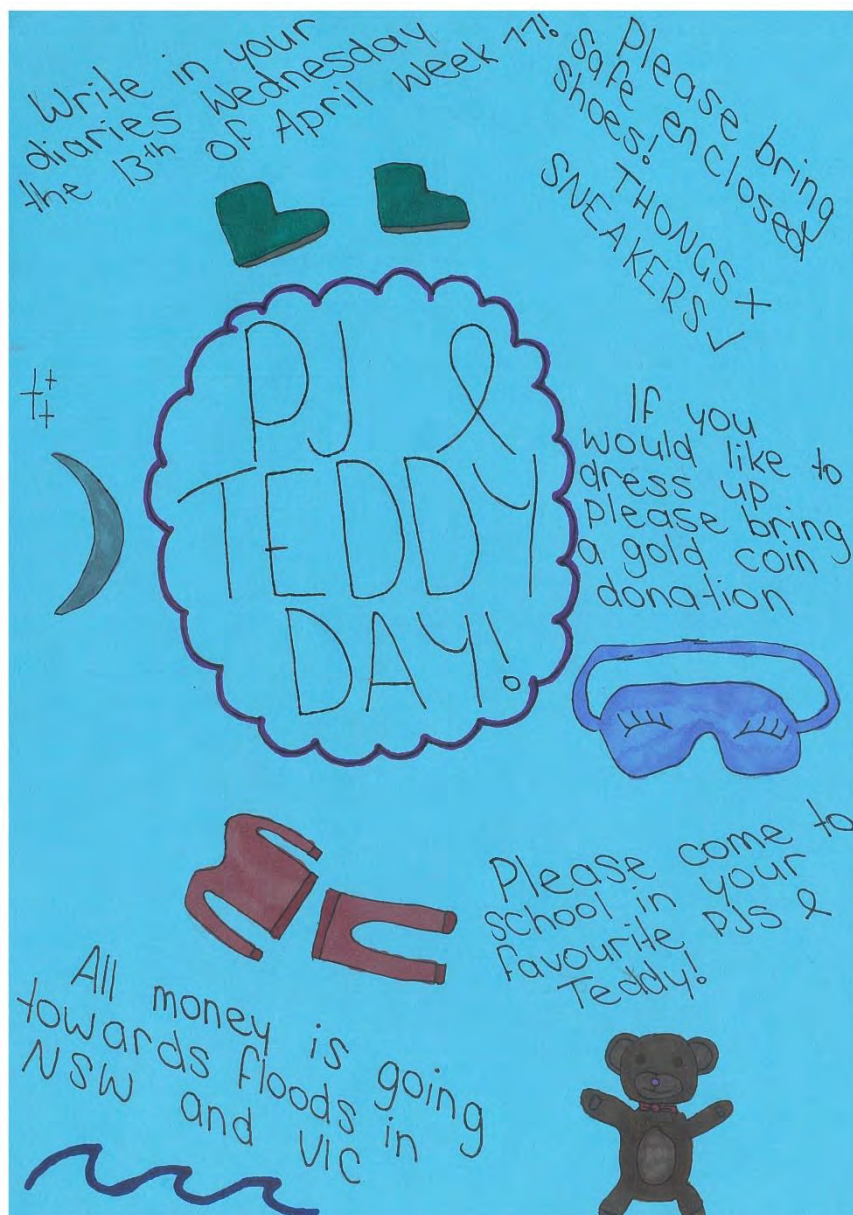 Write in your
diaries Wednesday
the 13th of April week 11!
Please bring
safe enclosed
shoes!
THONGS ×
SNEAKERS ✓
PJ &
TEDDY
DAY!
If you
would like to
dress up
please bring
a gold coin
donation
Please come to
school in your
favourite PJS &
Teddy!
All money is going
towards floods in
NSW and VIC